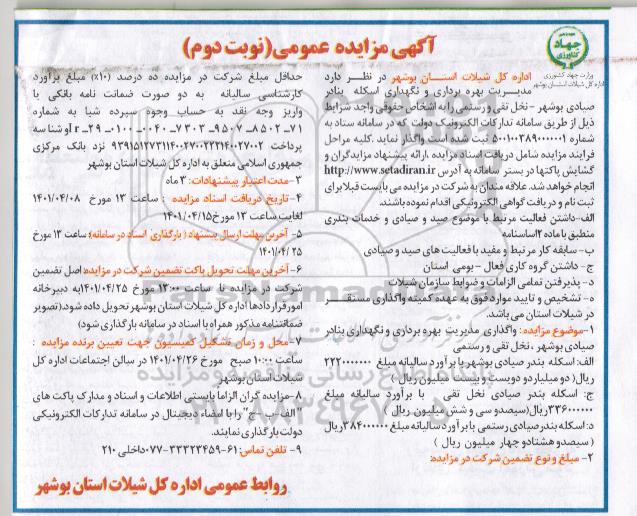 آگهی مزایده عمومی(نوبت دوم)
جهاد
کشاورزی
وزارت جهاد کشاورزی
اداره کل شیلات استان بوشهر
اداره کل شیلات استان بوشهر در نظر دارد
مدیریت بهره برداری و نگهداری اسکله بنادر
صیادی بوشهر - نخل تقی و رستمی را به اشخاص حقوقی واجد شرایط
ذیل از طریق سامانه تدارکات الکترونیک دولت که در سامانه ستاد به
شماره ۵۰۰۱۰۳۸۹۰۰۰۰۰۱ ثبت شده است واگذار نماید .کلیه مراحل
فرایند مزایده شامل دریافت اسناد مزایده ،ارائه پیشنهاد مزایدگران و
گشایش پاکتها در بستر سامانه به آدرس http://www.setadiran.ir
انجام خواهد شد. علاقه مندان به شرکت در مزایده می بایست قبلا برای
ثبت نام و دریافت گواهی الکترونیکی اقدام نموده باشند.
الف-داشتن فعالیت مرتبط با موضوع صید و صیادی و خدمات بندری
منطبق با ماده ۲ اساسنامه
ب- سابقه کار مرتبط و مفید با فعالیت های صید و صیادی
ج- داشتن گروه کاری فعال - بومی استان
د- پذیرفتن تمامی الزامات و ضوابط سازمان شیلات
ه- تشخیص و تایید موارد فوق به عهده کمیته واگذاری مستقر
در شیلات استان می باشد.
۱-موضوع مزایده : واگذاری مدیریت بهره برداری و نگهداری بنادر
صیادی بوشهر ، نخل تقی و رستمی
الف: اسکله بندر صیادی بوشهر با برآورد سالیانه مبلغ ۲۲۲۰۰۰۰۰۰۰
ریال ( دو میلیارد و دویست و بیست میلیون ریال )
ج: اسکله بندر صیادی نخل تقی با برآورد سالیانه مبلغ
۳۳۶۰۰۰۰۰۰ریال(سیصدو سی و شش میلیون ریال)
د: اسکله بندر صیادی رستمی با برآورد سالیانه مبلغ ۳۸۴۰۰۰۰۰۰ریال
( سیصدو هشتادو چهار میلیون ریال )
۲- مبلغ و نوع تضمین شرکت در مزایده:
حداقل مبلغ شرکت در مزایده ده درصد (۱۰٪) مبلغ برآورد
کارشناسی سالیانه به دو صورت ضمانت نامه بانکی یا
واریز وجه نقد به حساب وجوه سپرده شبا به شماره
پرداخت
نزد بانک مرکزی
جمهوری اسلامی متعلق به اداره کل شیلات استان بوشهر
۳-مدت اعتبار پیشنهادات: ۳ ماه
۴- تاریخ دریافت اسناد مزایده : ساعت ۱۳ مورخ ۱۴۰۱/۰۴/۰۸
لغایت ساعت ۱۳ مورخ ۱۴۰۱/۰۴/۱۵
۵- آخرین مهلت ارسال پیشنهاد ( بارگذاری اسناد در سامانه): ساعت ۱۳ مورخ
۱۴۰۱/۰۴/۲۵
۶-آخرین مهلت تحویل پاکت تضمین شرکت در مزایده: اصل تضمین
شرکت در مزایده تا ساعت ۱۳:۰۰ مورخ ۱۴۰۱/۰۴/۲۵به دبیرخانه
امور قراردادها اداره کل شیلات استان بوشهر تحویل داده شود.(تصویر
ضمانتنامه مذکور همراه با اسناد در سامانه بارگذاری شود)
۷-محل و زمان تشکیل کمیسیون جهت تعیین برنده مزایده :
ساعت ۱۰:۰۰ صبح مورخ ۱۴۰۱/۰۴/۲۶ در سالن اجتماعات اداره کل
شیلات استان بوشهر
۸-مزایده گران الزاما بایستی اطلاعات و اسناد و مدارک پاکت های
"الف-ب -ج" را با امضاء دیجیتال در سامانه تدارکات الکترونیکی
دولت بارگذاری نمایند.
۹- تلفن تماس: ۶۱-۰۷۷-۳۳۳۲۳۴۵۹داخلی ۲۱۰
روابط عمومی اداره کل شیلات استان بوشهر